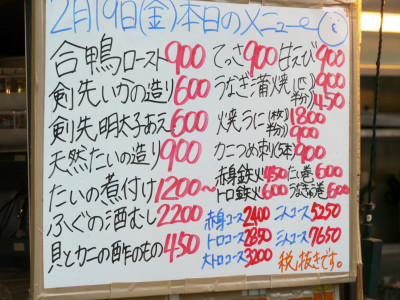 2月19日(金)本日のメニュー
合鴨ロースト900
剣先いかの造り600
剣先明太子あえ600
天然たいの造り900
たいの煮付け1200〜
ふぐの酒むし2200
貝とカニの酢のもの450
てっさ900 甘えび900
うなぎ蒲焼(一匹)900
450
焼うに(一枚)1800
900
カニつめ刺(5本)900
赤身鉄火450 たい巻600
トロ鉄火600 うなきゅう巻600
赤身コース2400 ニコース5250
トロコース2850 ミコース7650
大トロコース3200 税抜きです。